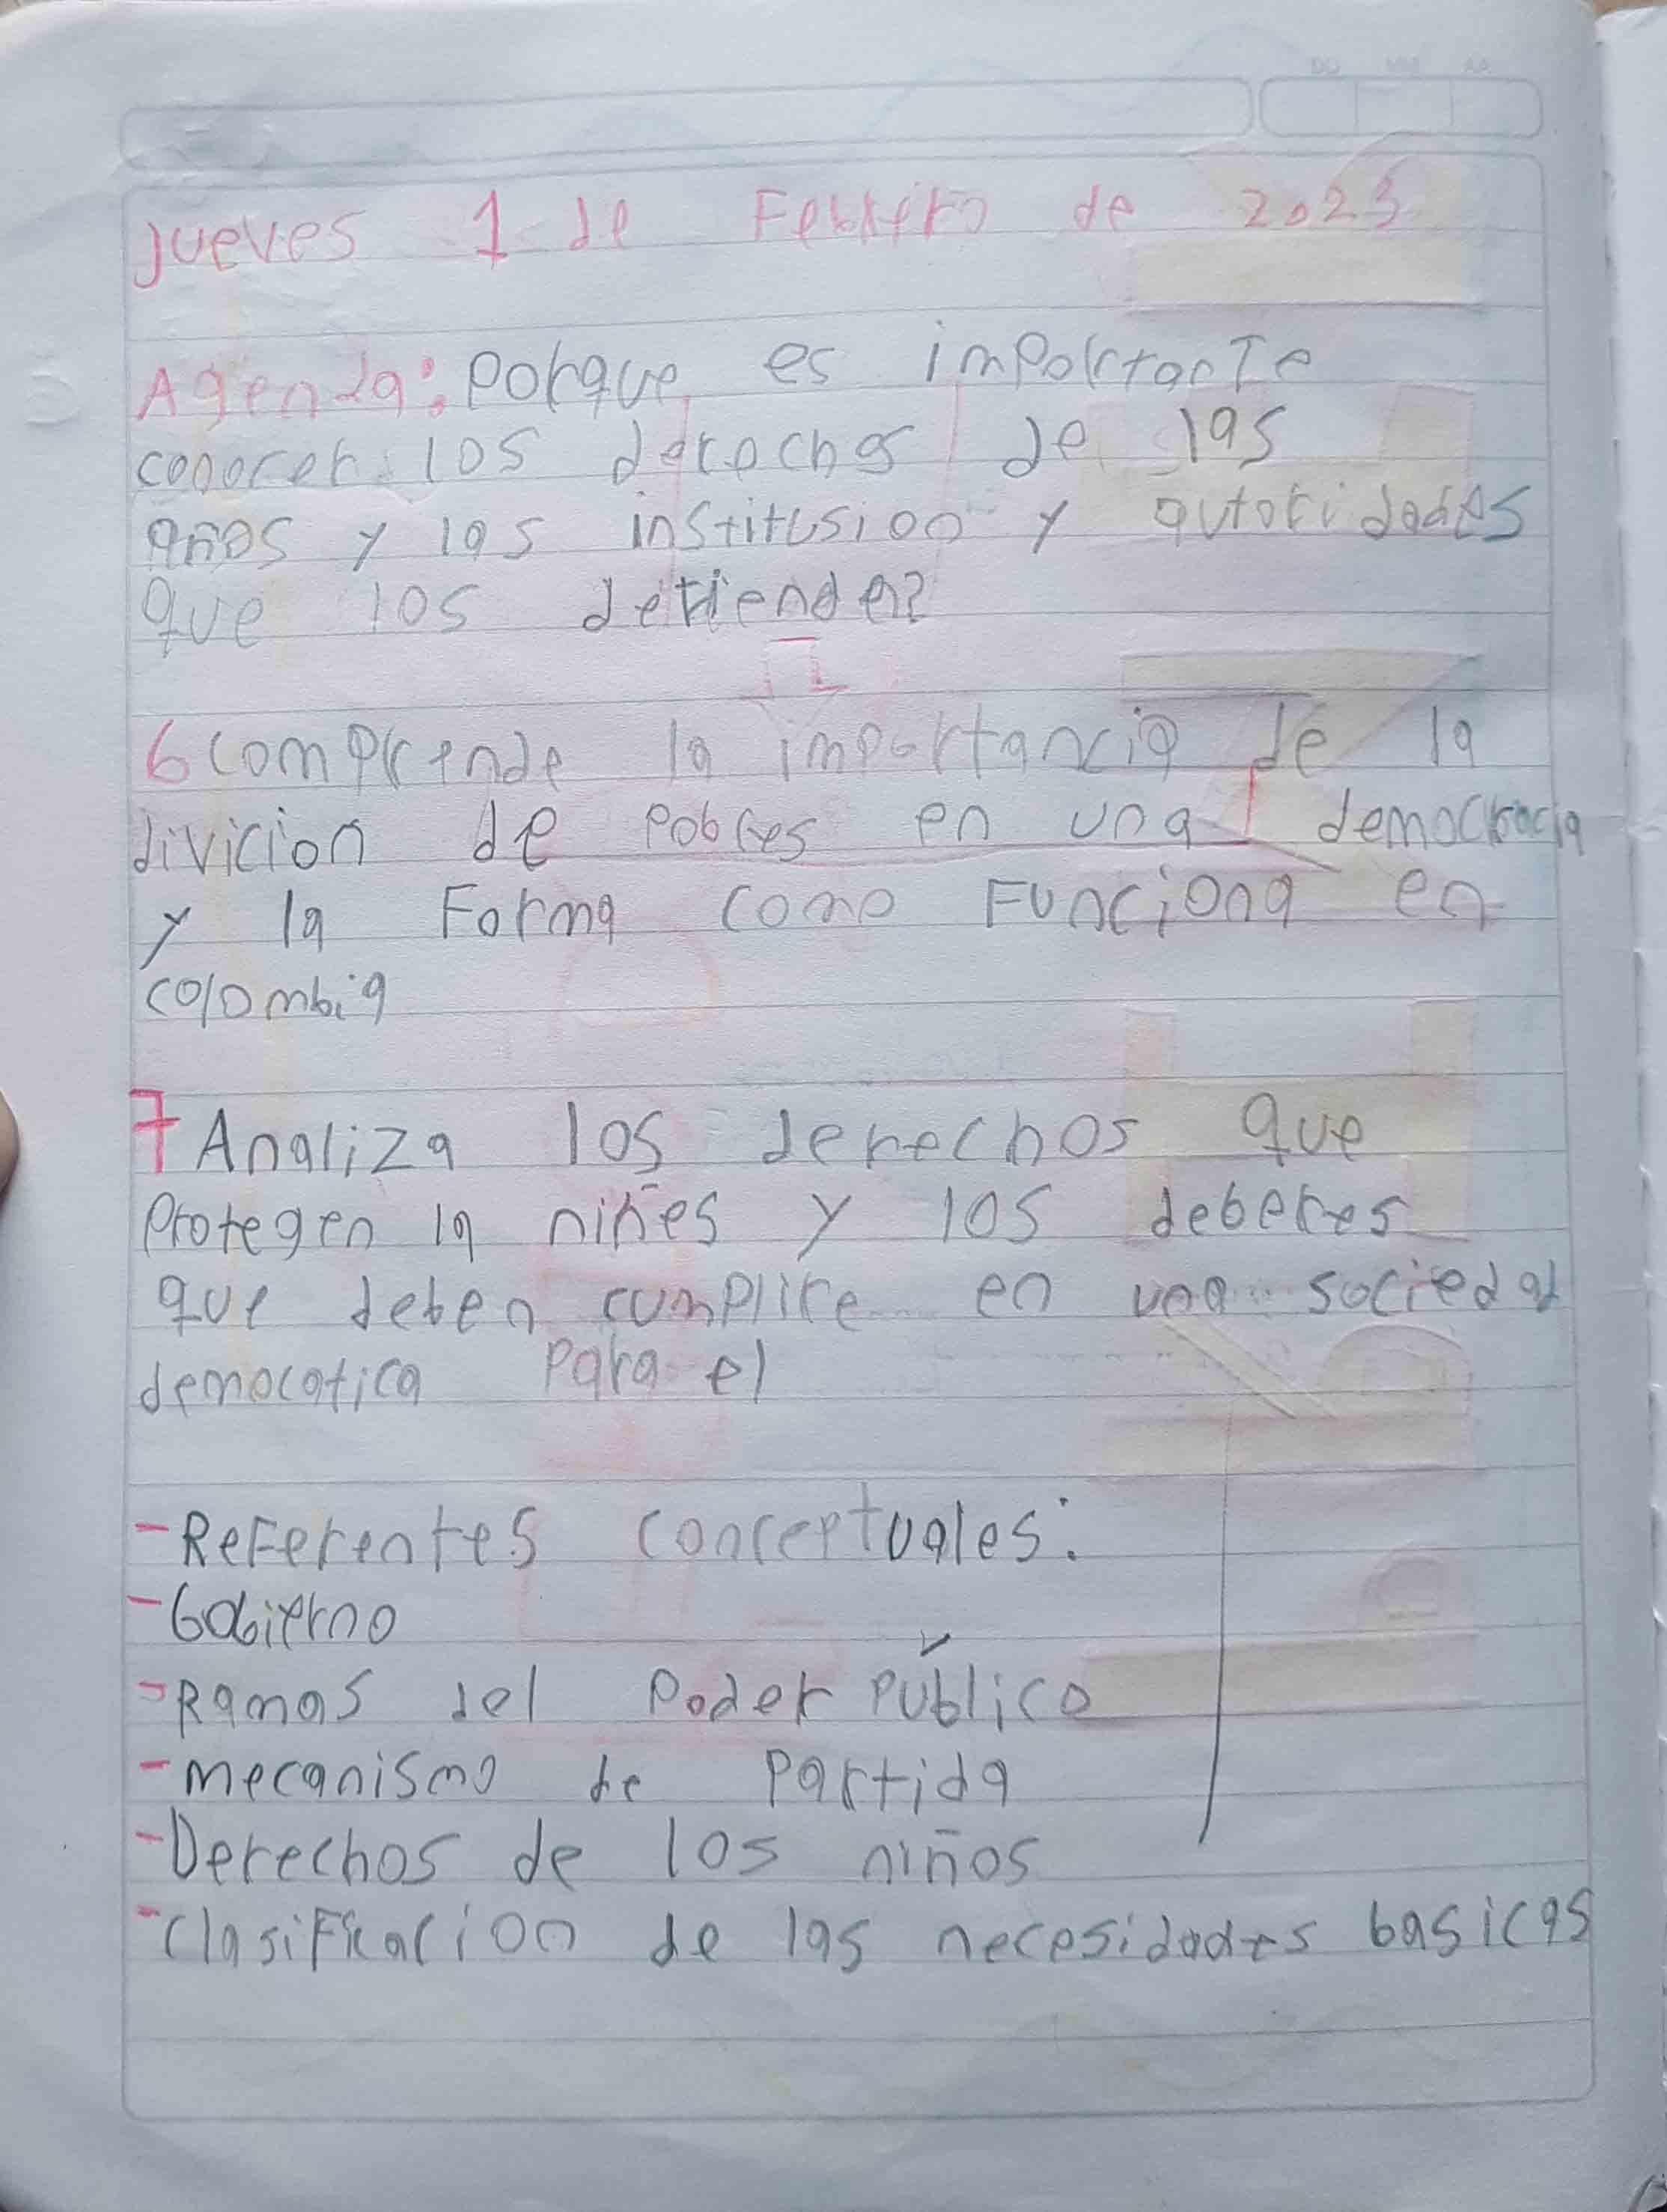 jueves 1 de Febrero de 2023
Agenda: Porque es importante
conocer los derechos de las
años y las institusion y autoridades
que los defienden?
6 Comprende la importancia de la
divicion de Pobres en una democracia
y la Forma como Funciona en
colombia
7 Analiza los derechos que
Protegen la niñes y los deberes
que deben cumplire en una sociedad
democatica Para el
- Referentes conceptuales:
- Gobierno
- Ramas del Poder Público
- mecanismo de Partida
- Derechos de los niños
- Clasificacion de las necesidades basicas